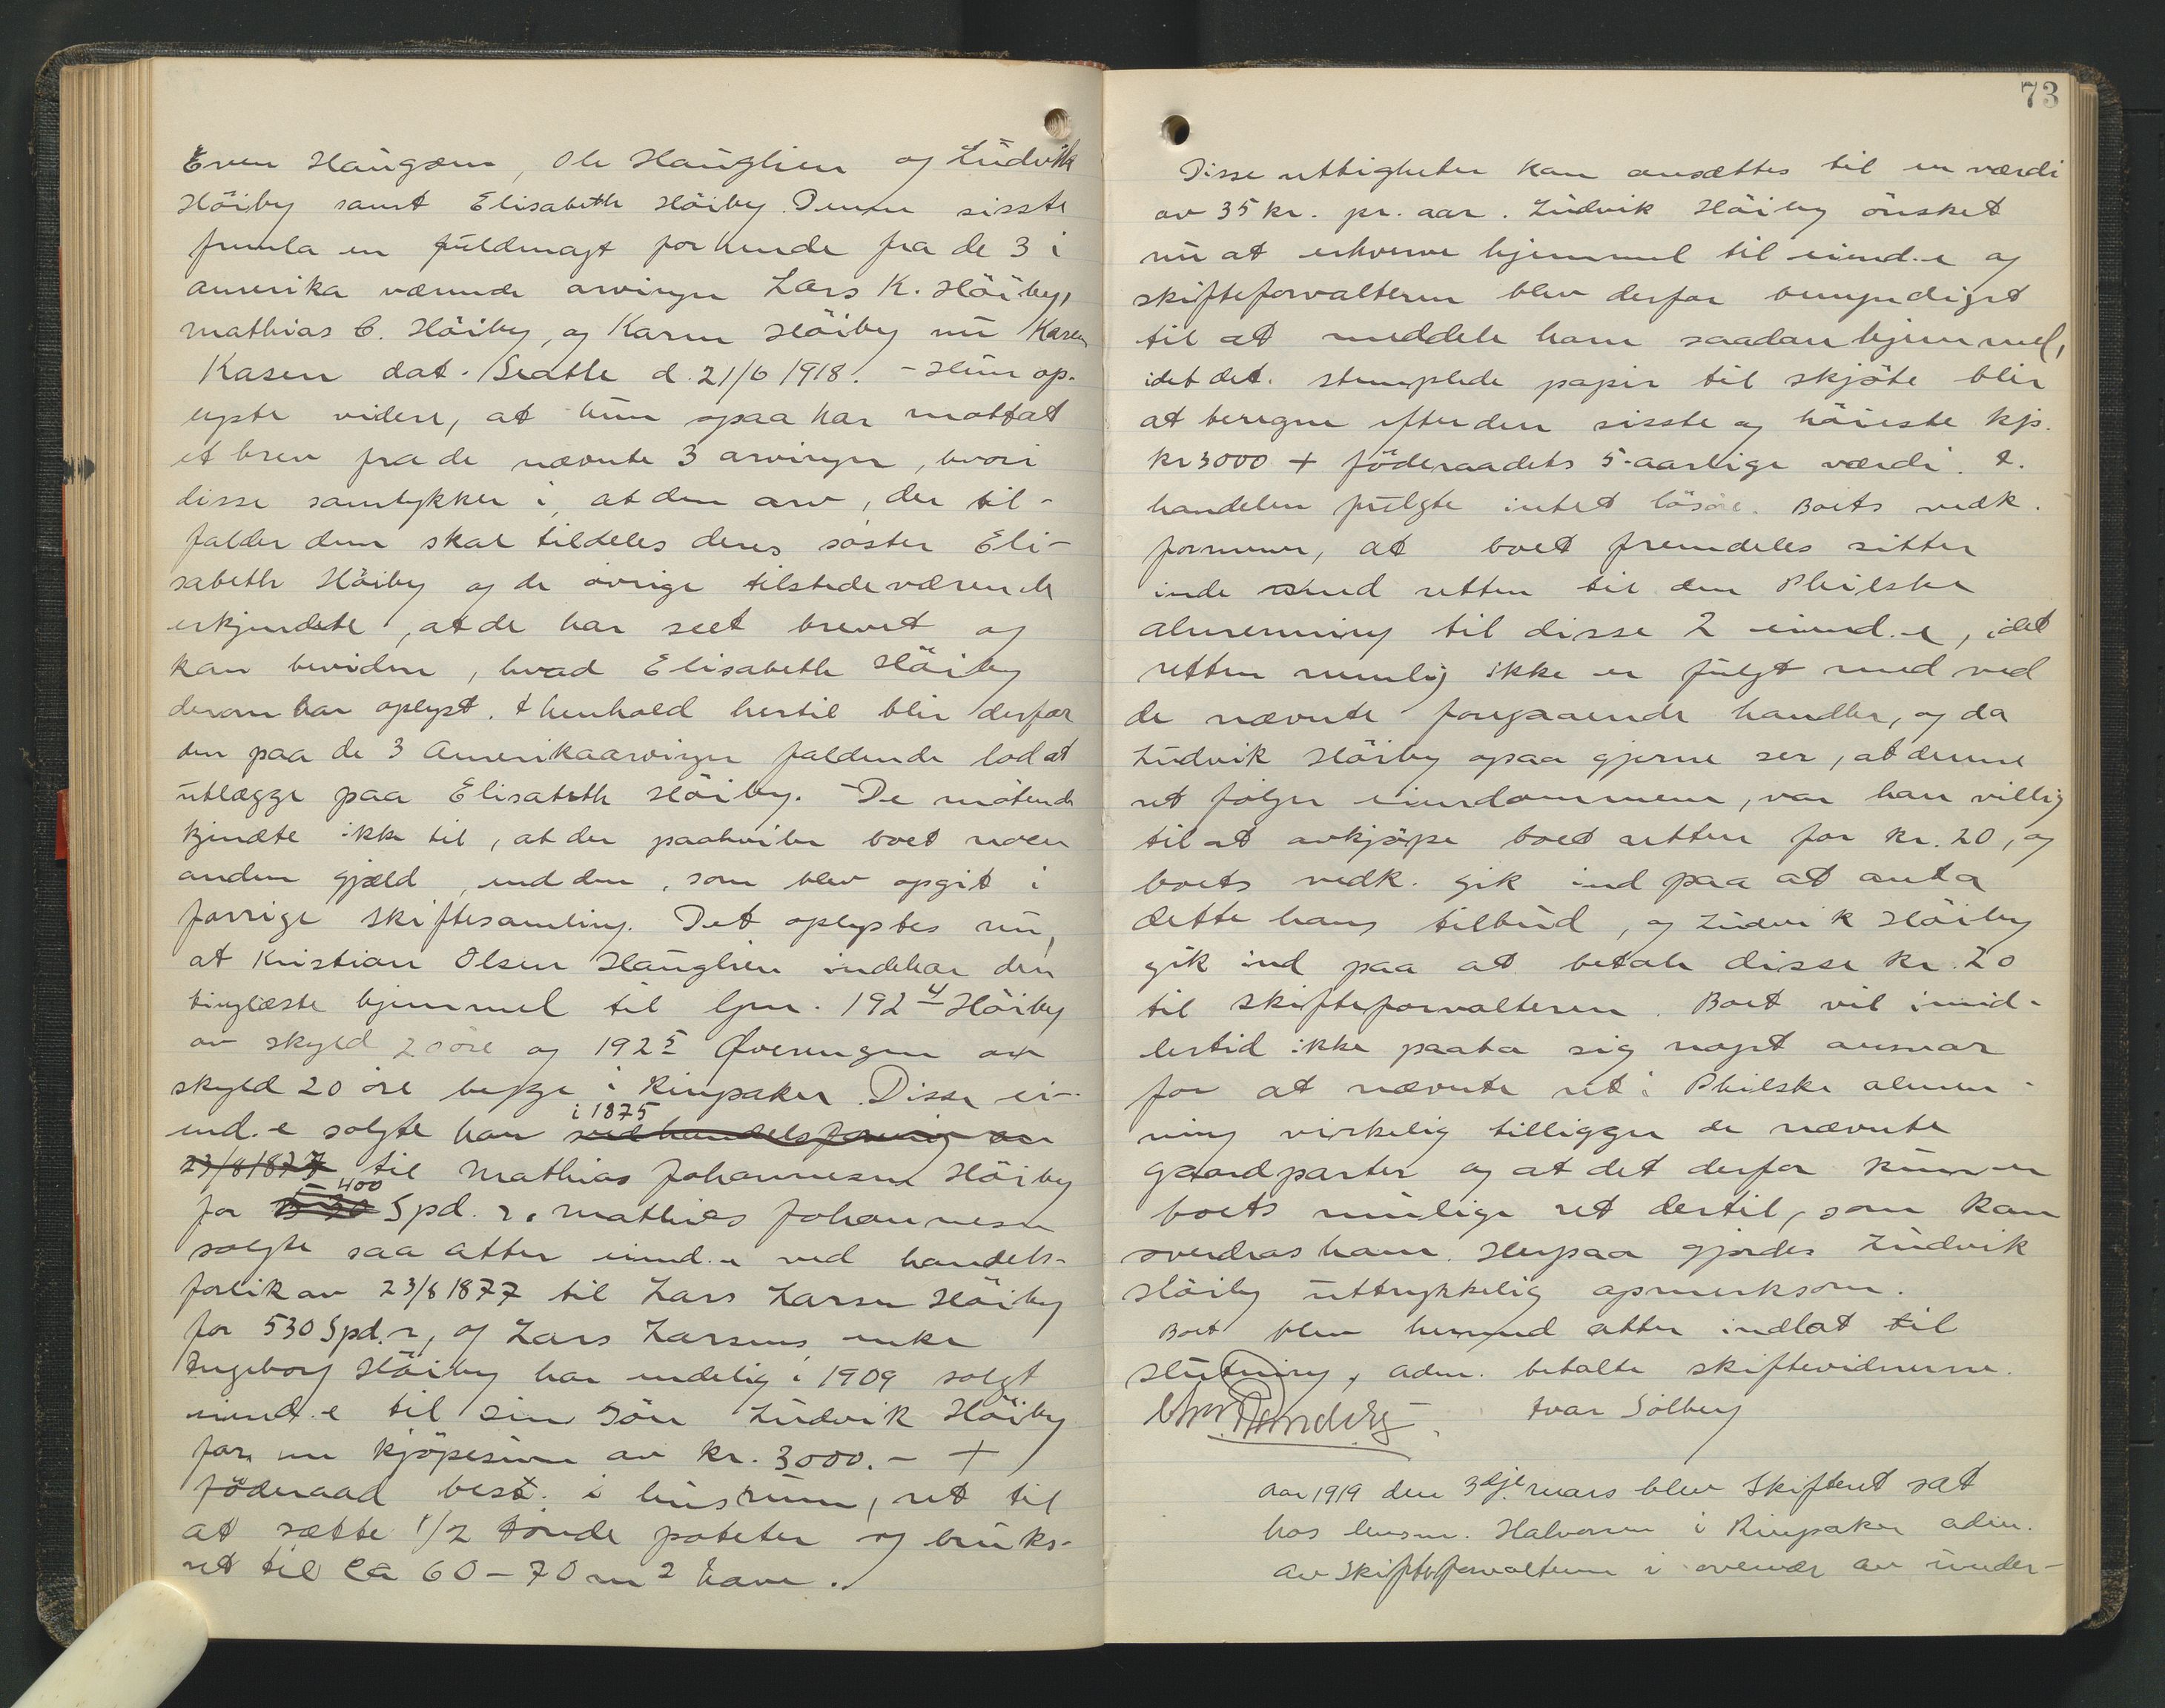 Even Haugom, Ole Hauglien og Ludvik
Höiby samt Elisabeth Höiby. Denne sisste
fremla en fuldmagt for hende fra de 3 i
Amerika værende arvinger Lars K. Höiby,
Mathias C. Höiby, og Karen Höiby nu Karen
Kasen dat. Seatle d. 21/6 1918. - Hun op-
lyste videre, at hun ogsaa har mottat
et brev fra de nævnte 3 arvinger, hvori
disse samtykker i, at den arv, der til-
falder dem skal tildeles deres söster Eli-
sabeth Höiby og de övrige tilstedeværende
erkjendte, at de har seet brevet og
kan bevidne, hvad Elisabeth Höiby
derom har oplyst. I henhold hertil blir derfor
den paa de 3 Amerikaarvinger faldende lod at
utlægge paa Elisabeth Höiby. De mötende
kjendte ikke til, at der paahviler boet noen
anden gjæld, end den, som blev opgit i
forrige skiftesamling. Det oplystes nu,
at Kristian Olsen Hauglien indehar den
tinglæste hjemmel til lpnr. 192 4 Höiby
av skyld 2 öre og 192 5 Øverengen av
skyld 20 öre begge i Ringsaker. Disse ei-
end.e solgte han i 1875 ved handelsforlik av
23/8 1877 til Mathias Johannesen Höiby
for 530 400 Spd. r. Mathias Johannesen
solgte saa atter eiend.e ved handels-
forlik av 23/8 1877 til Lars Larsen Höiby
for 530 Spd.r, og Lars Larsens enke
Ingeborg Höiby har endelig i 1909 solgt
eiend.e til sin sön Ludvik Höiby
for en kjöpesum av kr. 3000.- +
föderaad best. i husrum, ret til
at sætte 1/2 tönde poteter og bruks-
ret til ca 60-70 m2 have.
73
Disse rettigheter kan ansættes til en værdi
av 35 kr. pr. aar. Ludvik Höiby önsket
nu at erhverve hjemmel til eiend.e og
skifteforvalteren blev derfor bemyndiget
til at meddele ham saadan hjemmel,
idet det stemplede papir til skjöte blir
at beregne efter den sisste og höieste kjs.
kr 3000 + föderaadets 5-aarlige værdi. I
handelen fulgte intet lösöre. Boets vedk.
formener, at boet fremdeles sitter
inde med retten til den Philske
almenning til disse 2 eiend.e, idet
retten nemlig ikke er fulgt med ved
de nævnte foregaaende handler, og da
Ludvik Höiby ogsaa gjerne ser, at denne
ret fölger eiendommene, var han villig
til at avkjöpe boet retten for kr. 20, og
boets vedk. gik ind paa at anta
dette hans tilbud, og Ludvik Höiby
gik ind paa at betale disse kr. 20
til skifteforvalteren. Boet vil imid-
lertid ikke paata sig noget ansvar
for at nævnte ret i Philske almen-
ning virkelig tilligger de nævnte
gaardparter og at det derfor kun er
boets mulige ret dertil, som kan
overdras ham. Herpaa gjordes Ludvik
Höiby uttrykkelig opmerksom.
Boet blev hermed atter indlat til
slutning, adm. betalte skiftevidnerne.
Ivar Solberg
Aar 1919 den 3dje mars blev Skifteret sat
hos lensm. Halvorsen i Ringsaker adm.
av Skifteforvalteren i overvær av under-